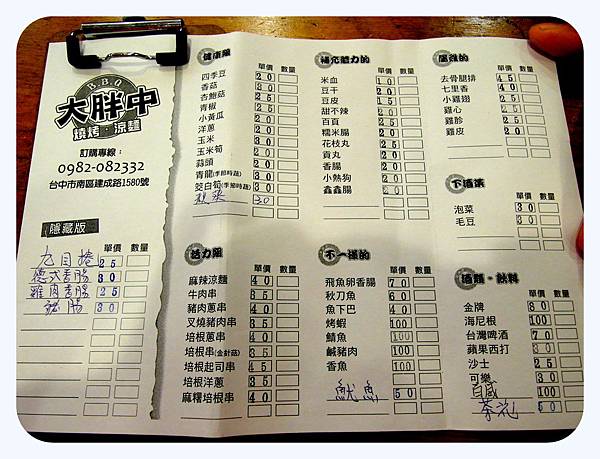 B.B.Q
大胖中
燒烤・涼麵
訂購專線：
0982-082332
台中市南區建成路1580號
隱藏版 單價 數量
25
德式香腸 30
雞肉香腸 25
30
健康羅 單價 數量
四季豆 20
香菇 30
杏鮑菇 25
青椒 20
小黃瓜 20
洋蔥 20
玉米 30
玉米筍 20
蒜頭 20
青龍(季節時蔬) 30
茭白筍(季節時蔬) 30
30
活力羅 單價 數量
麻辣涼麵 40
牛肉串 35
豬肉蔥串 35
叉燒豬肉串 40
培根蔥串 40
培根串(金針菇) 35
培根起司串 45
培根洋蔥 35
麻糬培根串 40
補充體力的 單價 數量
米血 10
豆干 20
豆皮 15
甜不辣 20
百頁 20
糯米腸 20
花枝丸 25
貢丸 20
香腸 20
小熱狗 20
鑫鑫腸 20
不一樣的 單價 數量
飛魚卵香腸 70
秋刀魚 60
魚下巴 40
烤蝦 100
鯖魚 100
鹹豬肉 100
香魚 100
魷魚 50
屬雞的 單價 數量
去骨腿排 45
七里香 40
小雞翅 25
雞心 25
雞胗 25
雞皮 20
下酒菜 單價 數量
泡菜 30
毛豆 30
酒類・飲料 單價 數量
金牌 80
海尼根 100
台灣啤酒 70
蘋果西打 30
沙士 25
可樂 30
百威 100
茶花 50